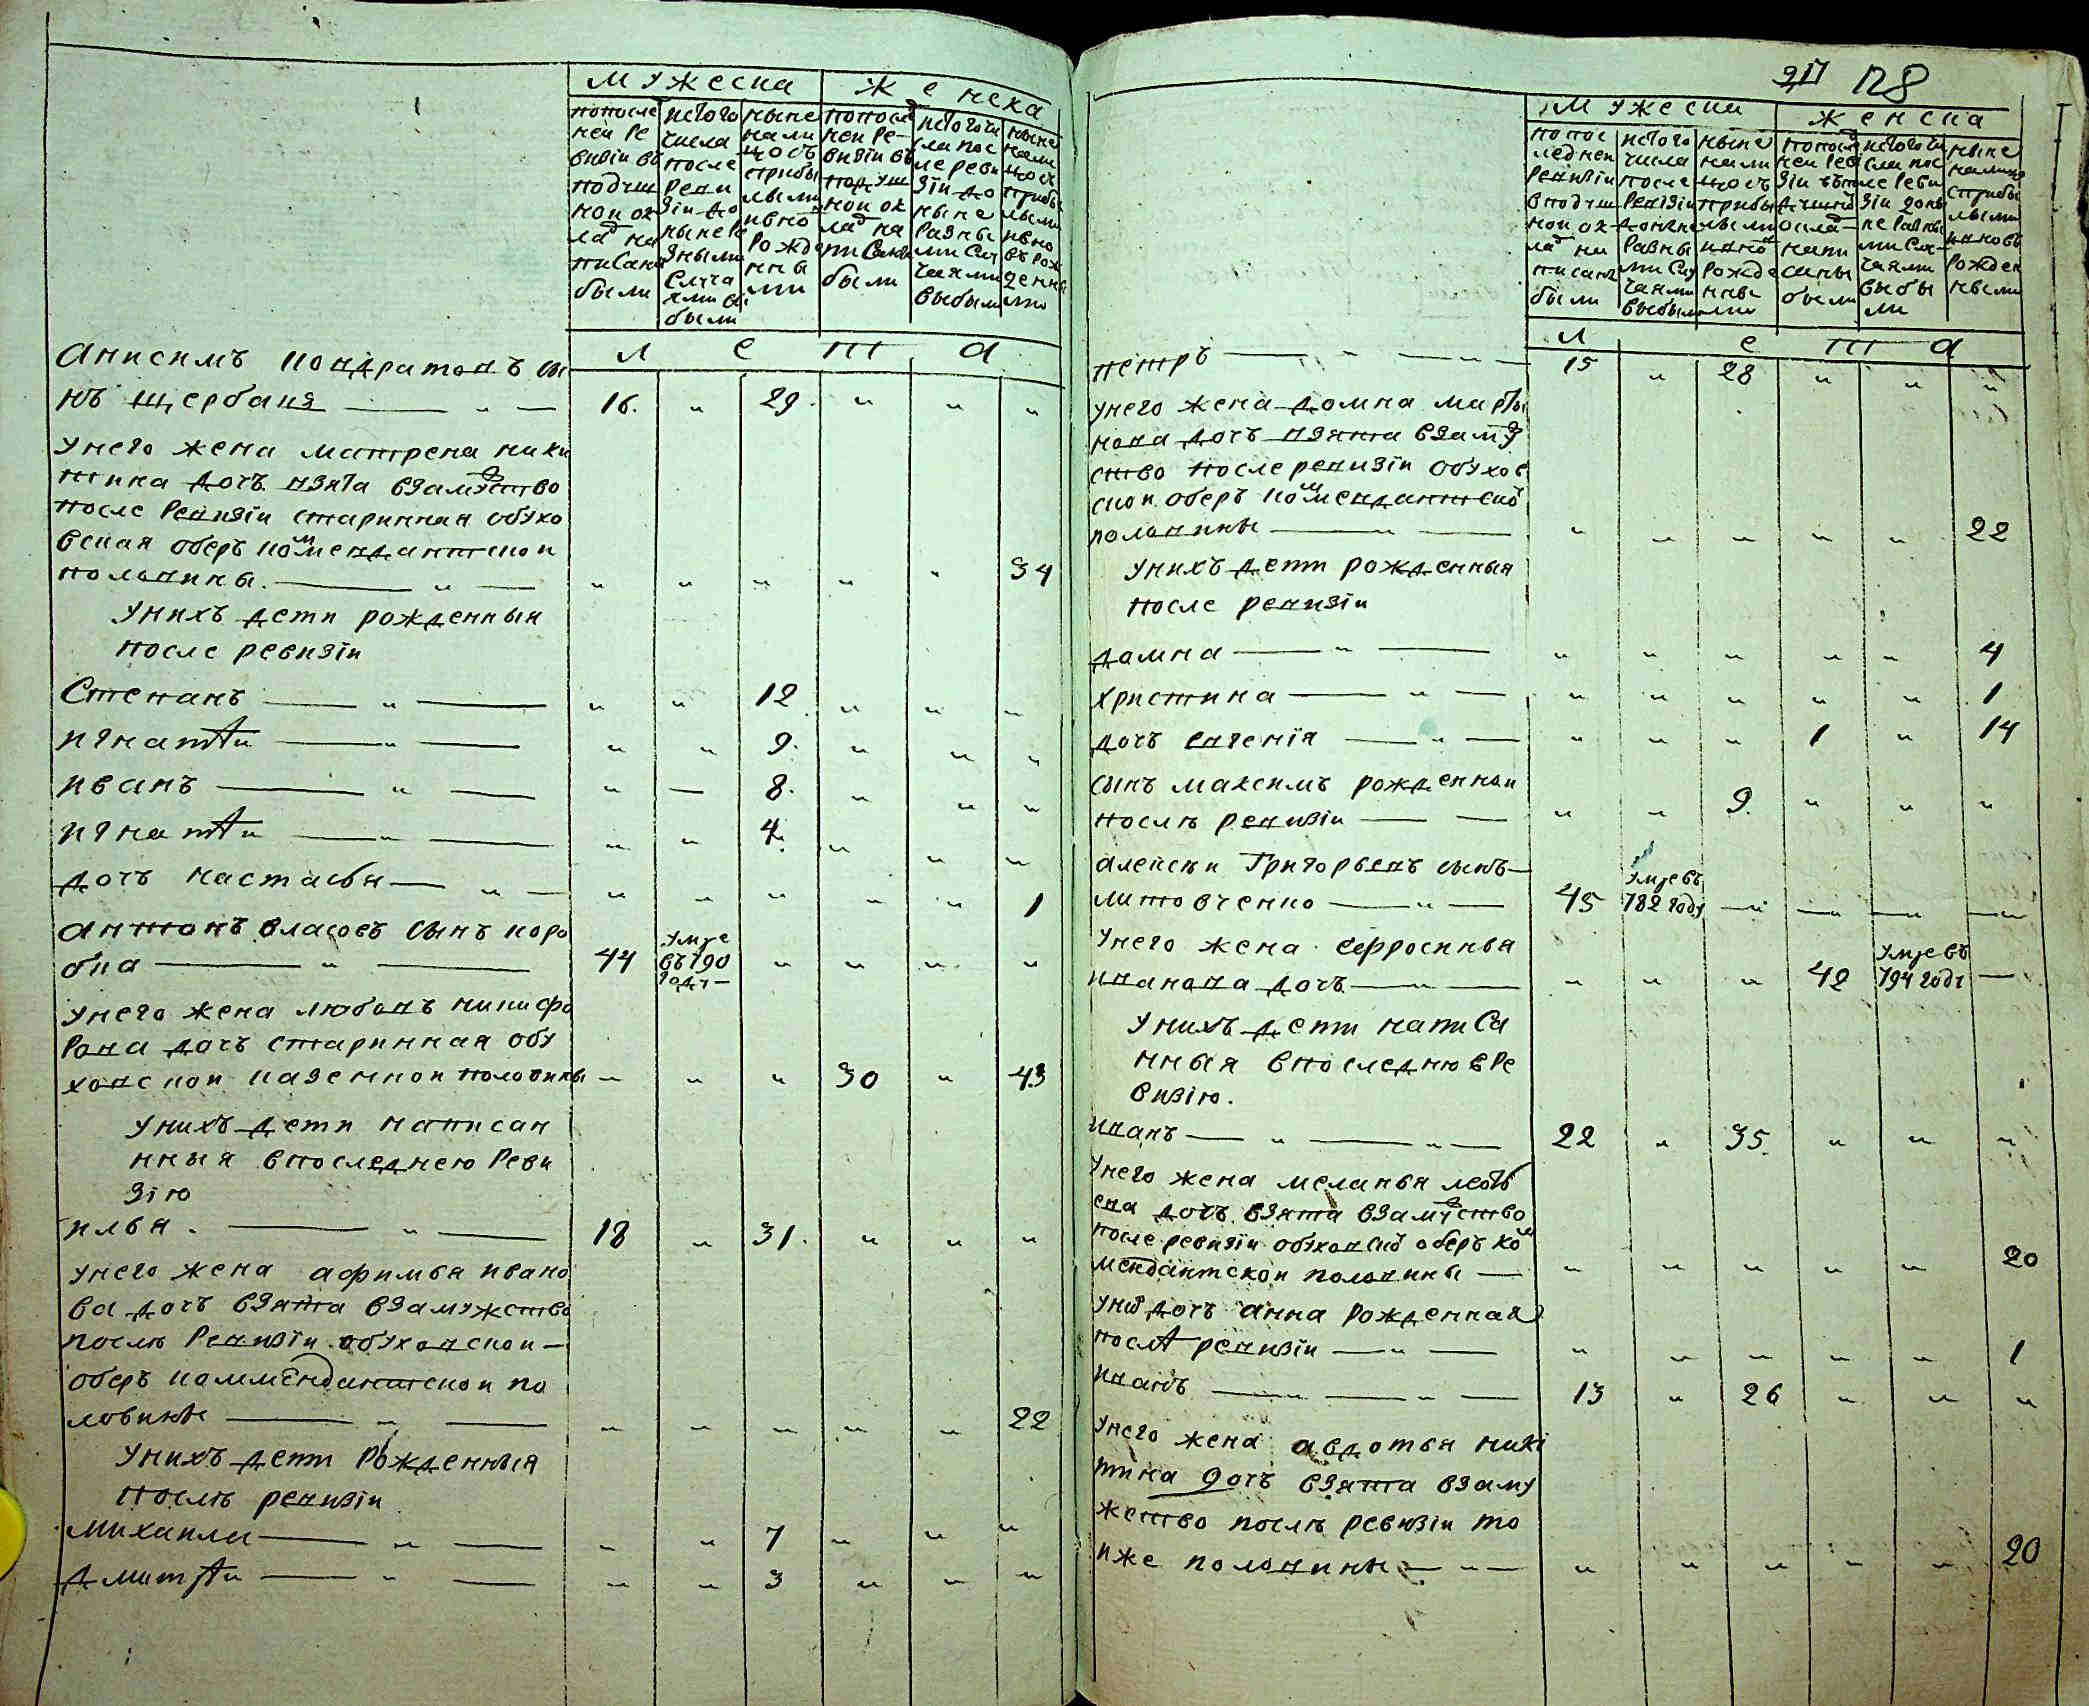 мужеска женска
попослед ней ревизіи въ подушной оклад написаны были
истого числа после ревизіи до ныне разными случаями выбыли
ныне налицо съ прибылыми и вновь рожденными
попослед ней ревизіи въ подушной оклад написаны были
истого числа после ревизіи до ныне разными случаями выбыли
ныне налицо съ прибылыми и вновь рожденными
лета
Анисимъ кондратовъ сы
нъ щербакъ 16. " 29. " " "
унего жена матрена ники
тина дочъ взята взамужство
после ревизіи старинная обухо
вская оберъ коменданской
половины. " " " " " 34
унихъ дети рожденныя
после ревизіи
Степанъ " " 12 " " "
игнатѣи " " 9. " " "
иванъ " — 8. " " "
игнатѣи " " 4. " " "
дочъ настасья " " " " " 1
антонъ власовъ сынъ коро
бка 44 умре въ 790 году " " " "
унего жена любовь никифо
рова дочъ старинная обу
ховской каземной половины " " " 30 " 43
унихъ дети написан
нныя впоследнею реви
зію
илья. 18 " 31. " " "
унего жена афимья ивано
ва дочъ взята взамужство
послѣ ревизіи обуховской
оберъ коммендантской по
ловины " " " " " 22
унихъ дети рожденныя
послѣ ревизіи
михаила " " 7 " " "
дмитрѣи " " 3 " " "
128
мужеска женска
попос ледней ревизіи вподушной оклад написаны были
истого числа после ревизіи доныне разными случаями выбыли
ныне налицосъ прибылыми и вновь рожденными
попослед ней ревизіи въ подушной оклад написаны были
истого числа после ревизіи доныне разными случаями выбыли
ныне налицо съ прибылыми и вновь рожденными
лета
петръ 15 " 28 " " "
унего жена домна марты
нова дочъ взята взамуж
ство после ревизіи обухов
ской оберъ коменданской
половины " " " " " 22
унихъ дети рожденныя
после ревизіи
домна " " " " " 4
христина " " " " " 1
дочъ евгенія " " " 1 " 14
сынъ максимъ рожденной
послѣ ревизіи " " 9. " " "
алексѣй Григорьевъ сынъ
литовченко 45 умре въ 782 году " " " "
унего жена ефросинья
иванова дочъ " " " 42 умре въ 794 году —
унихъ дети написа
нныя впоследнюю ре
визію.
иванъ 22 " 35. " " "
унего жена меланья леоть
ева дочъ взята взамужство
после ревизіи обуховской оберъ ком
мендантской половины " " " " " 20
уних дочъ анна рожденная
послѣ ревизіи " " " " " 1
иванъ 13 " 26 " " "
унего жена авдотья ники
тина дочъ взята взаму
жество послѣ ревизіи то
иже половины " " " " " 20